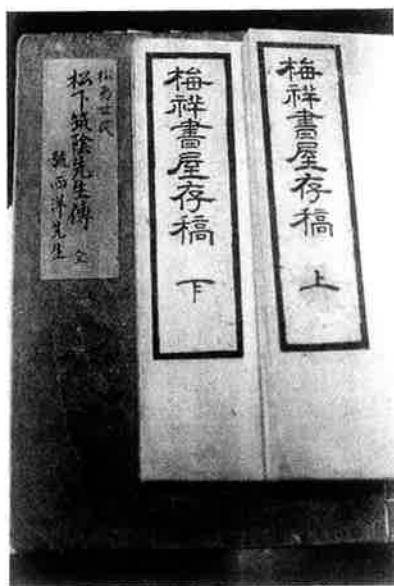 梅祥書屋存稿 上
梅祥書屋存稿 下
松下筑陰先生傳 全
號西洋先生